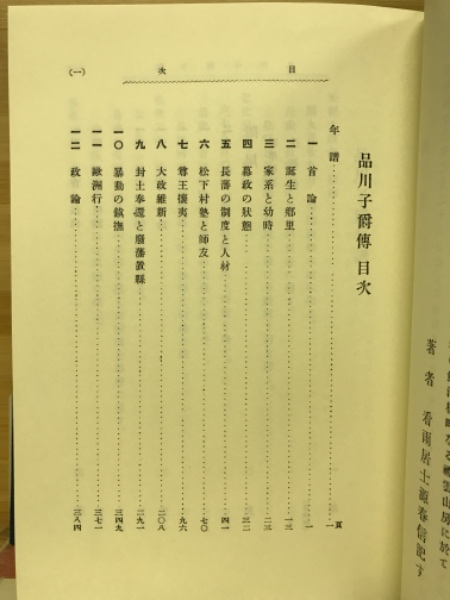 著者 看雨居士源春信記す
目次
品川子爵傳 目次
頁
年譜 一
一 首論 一
二 誕生と鄕里 一三
三 家系と幼時 二三
四 幕政の狀態 三二
五 長藩の制度と人材 四一
六 松下村塾と師友 七〇
七 尊王攘夷 九六
八 大政維新 二〇八
九 封土奉還と廢藩置縣 二九一
一〇 暴動の鎭撫 三四九
一一 歐洲行 三七一
一二 政論 三八四
(一)